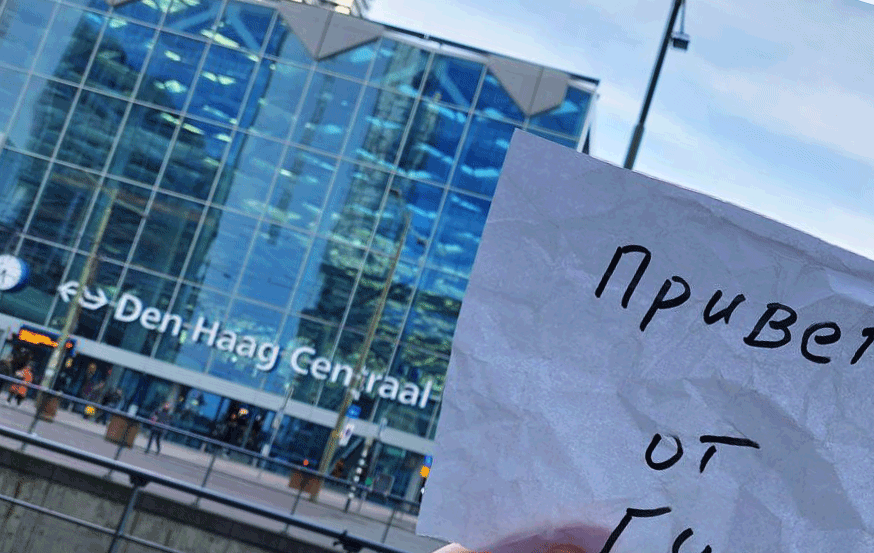 Den Haag Centraal
Привет
от